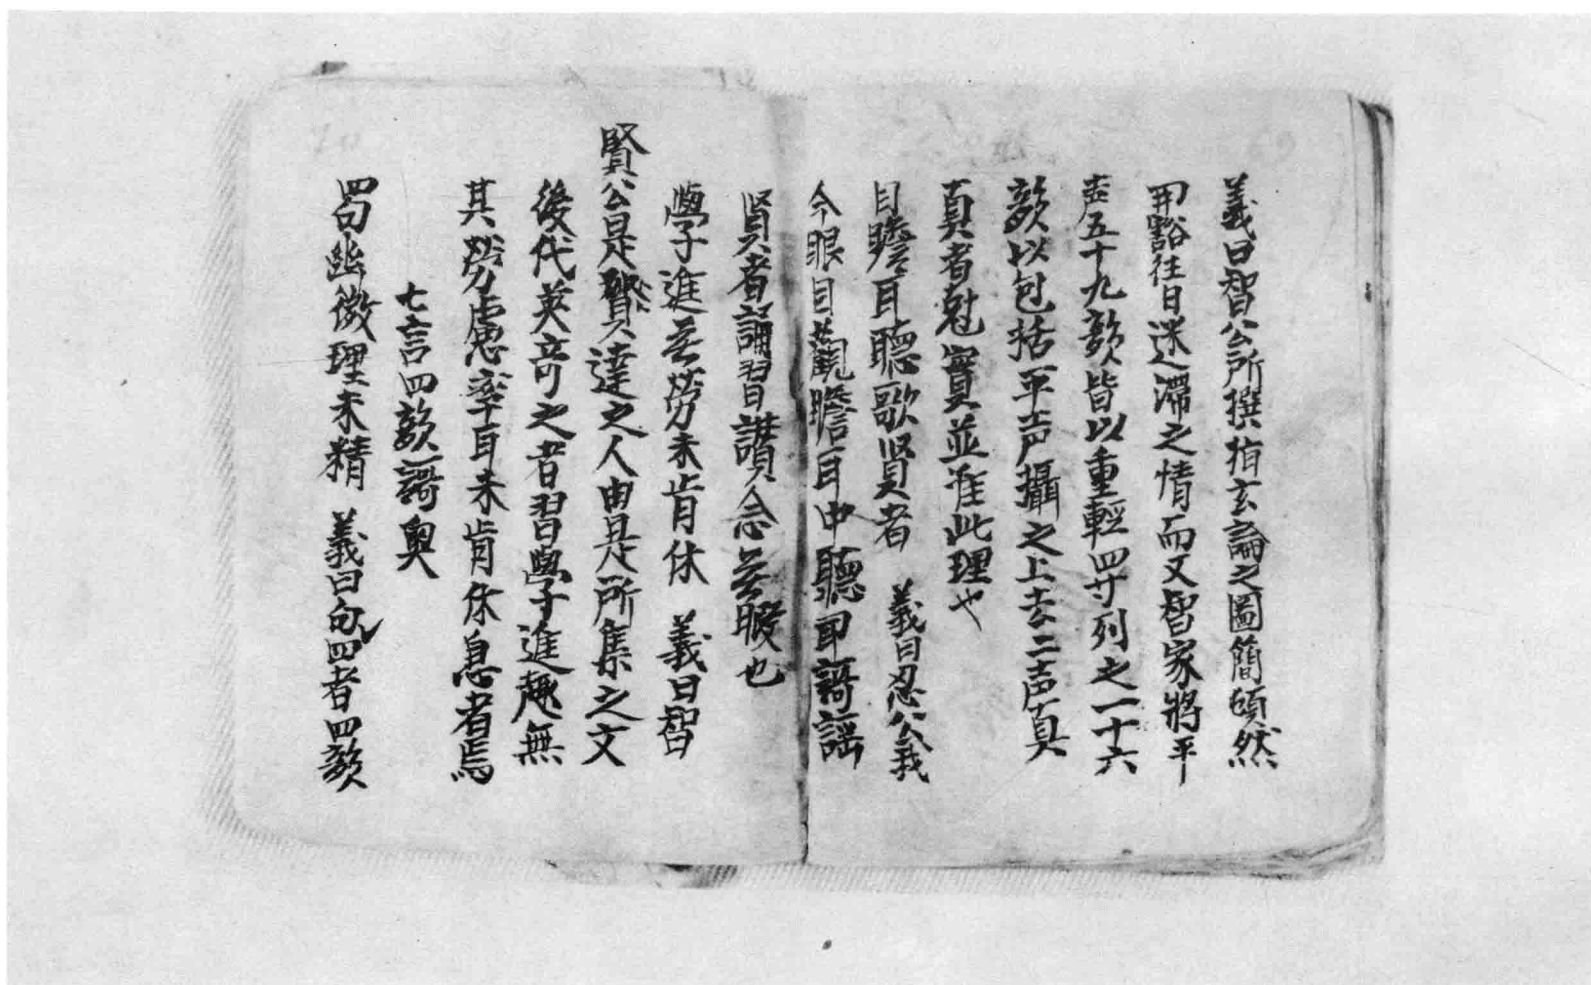 義曰智公所撰指玄論之圖簡頓然
開豁往日迷滯之情而又智家將平
声五十九韻皆以重輕四等列之一十六
韻以包括平声攝之上去二声真
真者尅實並准此理也
目瞻耳聽歌賢者 義曰忍公我
今眼目觀瞻耳中聽聞謌謡
賢者誦習讃念無暇也
學子進無勞未肯休 義曰智
賢公是賢達之人由是所集之文
後代英竒之者習學子進趣無
其勞慮率耳未肯休息者焉
七言四韻謌奥
四句幽微理未精 義曰句四者四韻